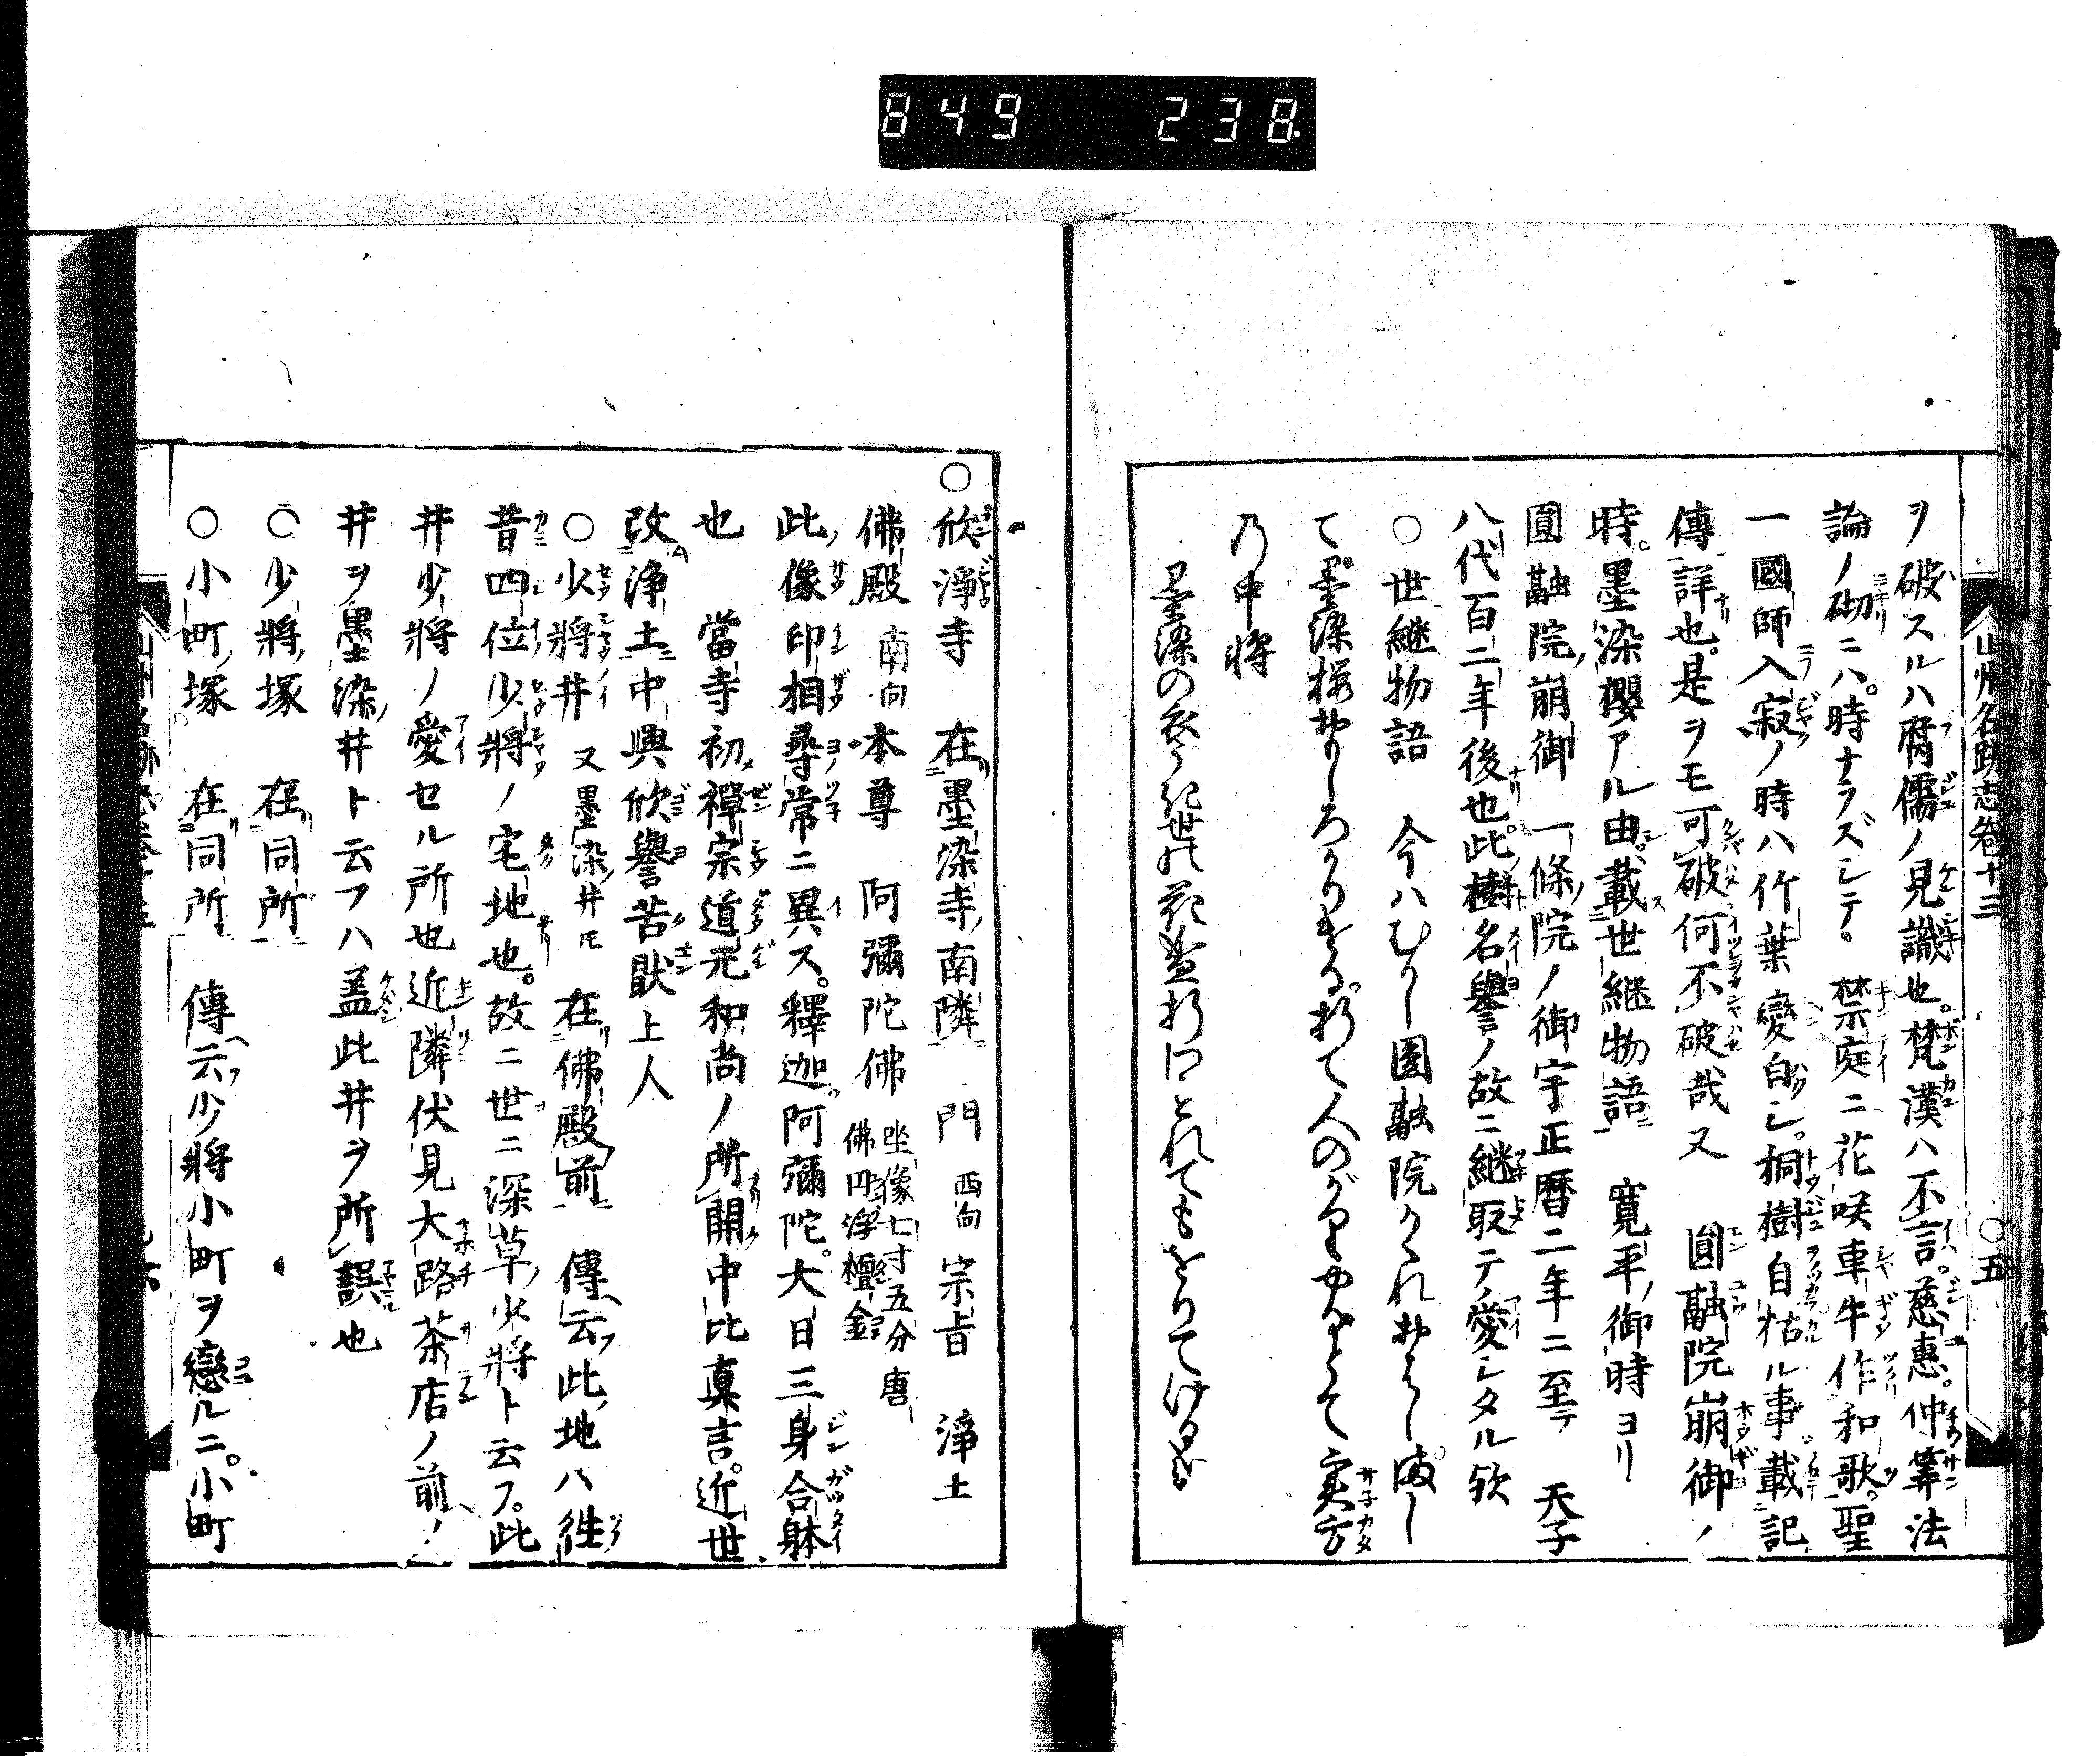 849 238
山州名跡志卷十三 ○五
ヲ破スルハ腐儒ノ見識也。梵漢ハ不言。慈惠。仲筭法
論ノ砌ニハ。時ナラズシテ。禁庭ニ花咲車牛作和歌。聖
一國師入寂ノ時ハ竹葉變白シ。桐樹自枯ル事載記
傳詳也。是ヲモ可破何不破哉又 圓融院崩御ノ
時。墨染櫻アル由。載世継物語 寛平御時ヨリ
圓融院崩御 一條院ノ御宇正暦二年ニ至テ 天子
八代百二年後也。此樹名譽ノ故ニ継取テ愛シタル欤
○世継物語 今ハむかし圓融院かくれおはし満し
て墨染桜おもしろかりける。折て人のがりやるとて実方
乃中将
墨染の衣うき世の花盛折わすれてもをりてけるかな
○欣淨寺 在墨染寺南隣 門 西向 宗旨 淨土
佛殿 南向 本尊 阿彌陀佛 坐像七寸五分唐
佛円浮檀金
此像印相尋常ニ異ス。釋迦阿彌陀。大日三身合躰
也 當寺初禪宗道元和尚ノ所開中比真言。近世
改淨土中興欣譽苦猒上人
○少將井 又墨染井𪜈 在佛殿前 傳云此地ハ徃
昔四位少將ノ宅地也。故ニ世ニ深草少將ト云フ。此
井少將ノ愛セル所也近隣伏見大路茶店ノ前ノ
井ヲ墨染井ト云フハ盖此井ヲ所誤也
○少將塚 在同所
○小町塚 在同所 傳云少將小町ヲ戀ルニ。小町